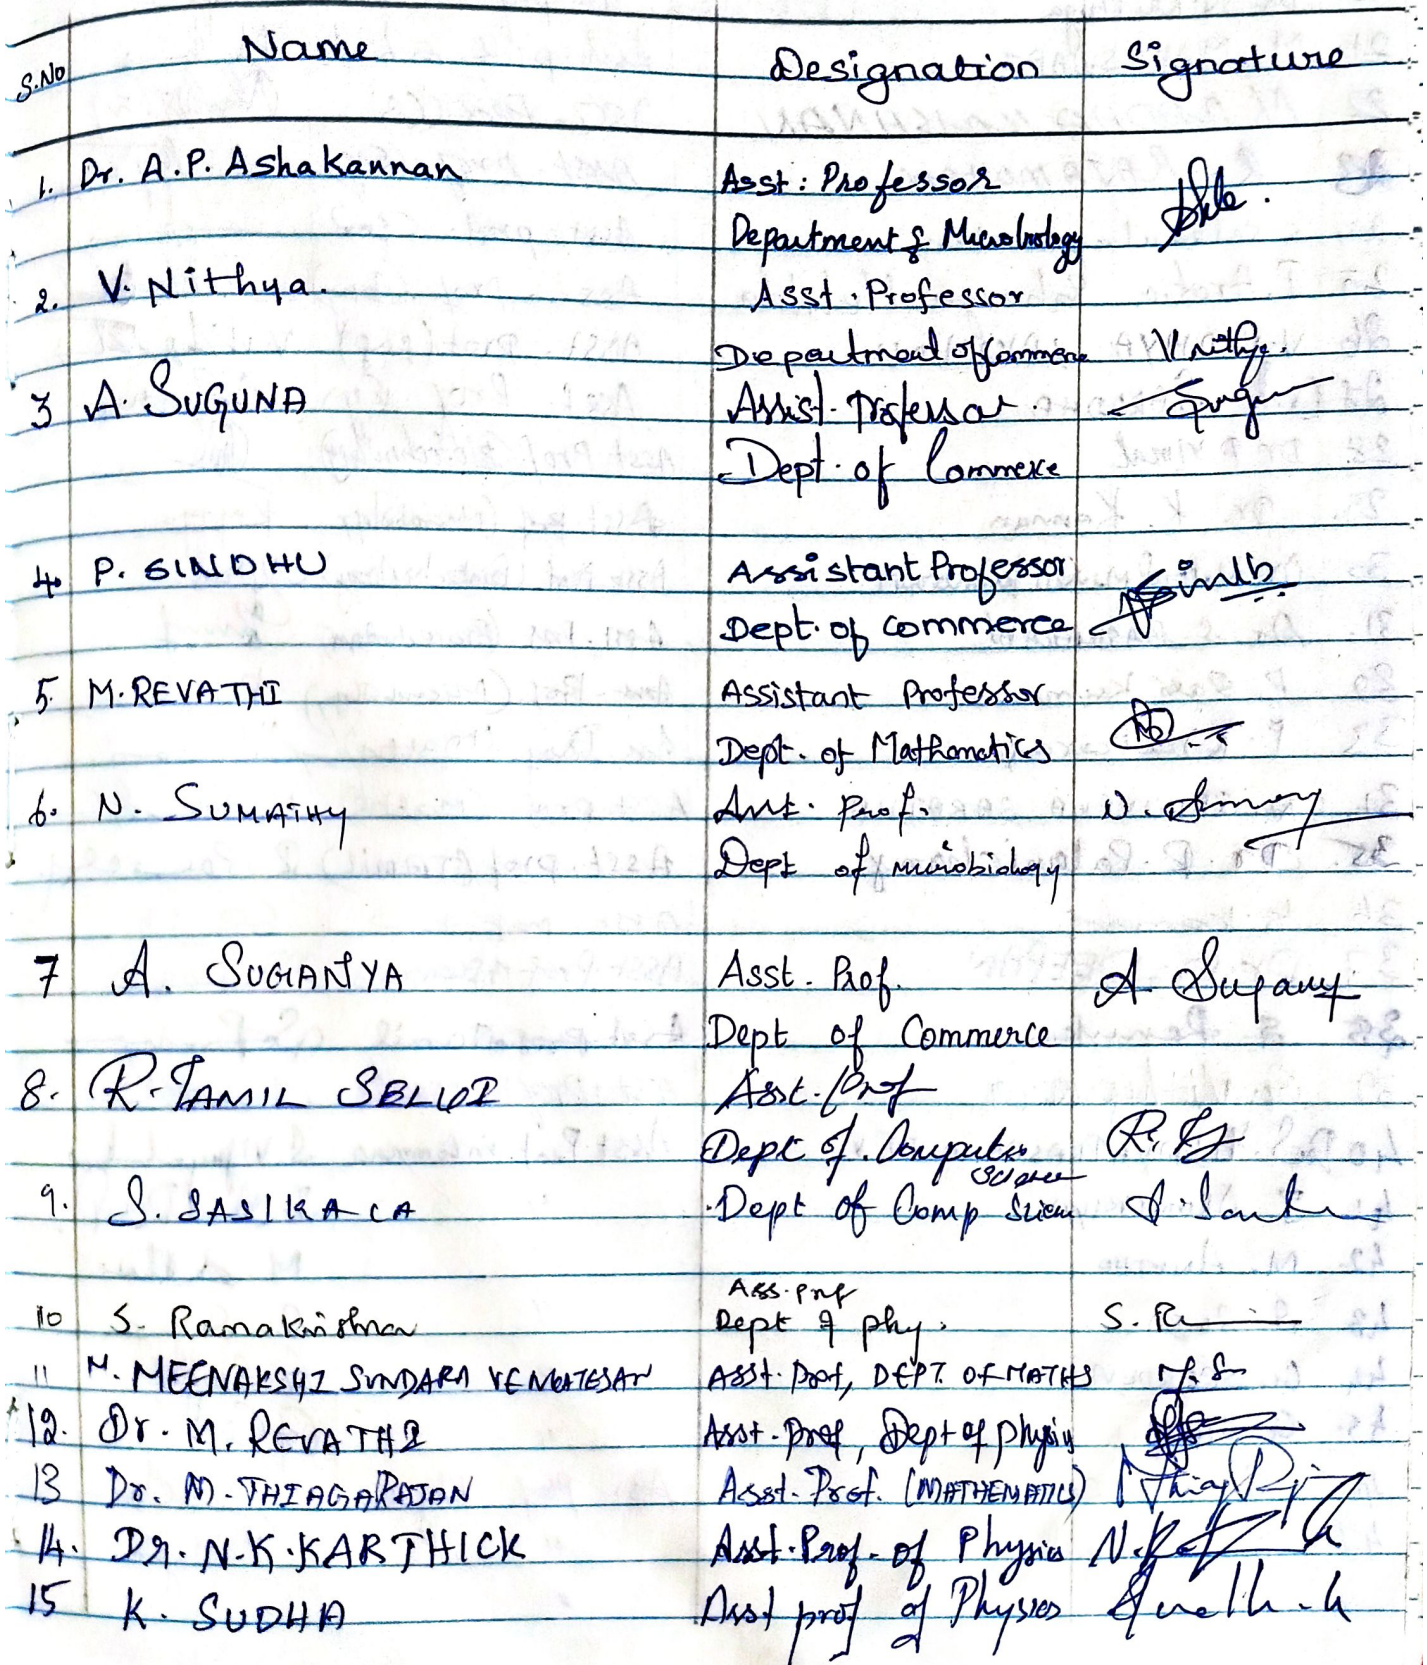 S.No Name Designation Signature
1. Dr. A.P. Ashakannan Asst: Professor
Department of Microbiology
2. V. Nithya. Asst. Professor
Department of Commerce V. Nithya.
3 A. SUGUNA Assist. Professor.
Dept. of Commerce
4. P. SINDHU Assistant Professor
Dept. of commerce
5. M. REVATHI Assistant Professor
Dept. of Mathematics
6. N. SUMATHY Asst. Prof.
Dept of microbiology
7 A. SUGANYA Asst. Prof. A. Suganya
Dept of Commerce
8. R. TAMIL SELVI Asst. Prof
Dept of. Computer
Science
9. S. SASIKALA Dept of Comp Scien
Ass. prof
10 S. Ramakrishnan Dept of phy. S. R
11 M. MEENAKSHI SUNDARA VENKATESAN Asst. Prof, DEPT. OF MATHS
12. Dr. M. REVATHI Asst. Prof, Dept of physics
13 Dr. M. THIAGARAJAN Asst. Prof. (MATHEMATICS)
14. Dr. N.K. KARTHICK Asst. Prof. of Physics
15 K. SUDHA Asst prof of Physics